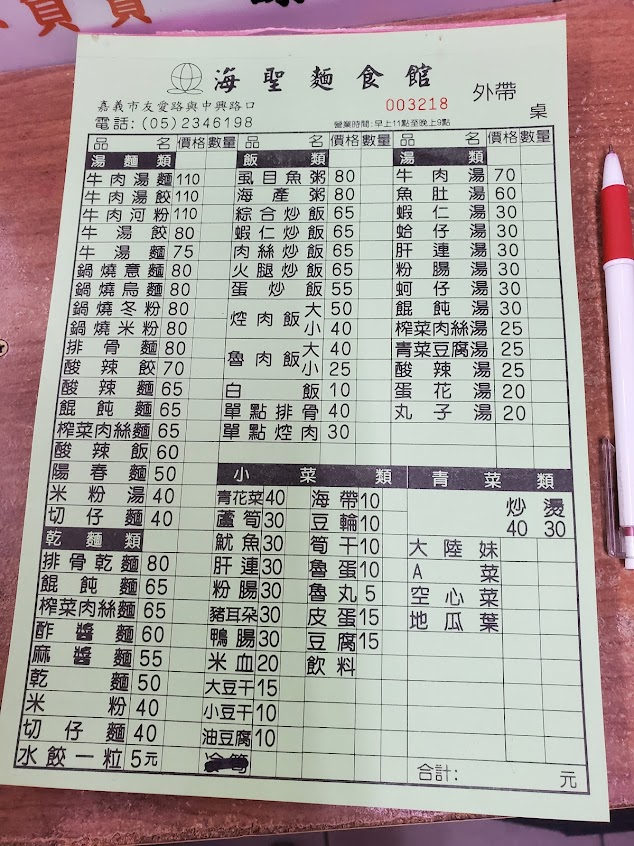 海聖麵食館
嘉義市友愛路與中興路口
003218
外帶
電話:(05)2346198
營業時間:早上11點至晚上9點
桌
品名 價格 數量
湯麵類
牛肉湯麵 110
牛肉湯餃 110
牛肉河粉 110
牛湯餃 80
牛湯麵 75
鍋燒意麵 80
鍋燒烏麵 80
鍋燒冬粉 80
鍋燒米粉 80
排骨麵 80
酸辣餃 70
酸辣麵 65
餛飩麵 65
榨菜肉絲麵 65
酸辣飯 60
陽春麵 50
米粉湯 40
切仔麵 40
乾麵類
排骨乾麵 80
餛飩麵 65
榨菜肉絲麵 65
酢醬麵 60
麻醬麵 55
乾麵 50
米粉 40
切仔麵 40
水餃一粒 5元
品名 價格 數量
飯類
虱目魚粥 80
海產粥 80
綜合炒飯 65
蝦仁炒飯 65
肉絲炒飯 65
火腿炒飯 65
蛋炒飯 55
焢肉飯 大 50
小 40
魯肉飯 大 40
小 25
白飯 10
單點排骨 40
單點焢肉 30
品名 價格 數量
湯類
牛肉湯 70
魚肚湯 60
蝦仁湯 30
蛤仔湯 30
肝連湯 30
粉腸湯 30
蚵仔湯 30
餛飩湯 30
榨菜肉絲湯 25
青菜豆腐湯 25
酸辣湯 25
蛋花湯 20
丸子湯 20
小菜類
青花菜 40
蘆筍 30
魷魚 30
肝連 30
粉腸 30
豬耳朵 30
鴨腸 30
米血 20
大豆干 15
小豆干 10
油豆腐 10
海帶 10
豆輪 10
筍干 10
魯蛋 10
魯丸 5
皮蛋 15
豆腐 15
飲料
青菜類
炒 燙
40 30
大陸妹
A菜
空心菜
地瓜葉
合計: 元